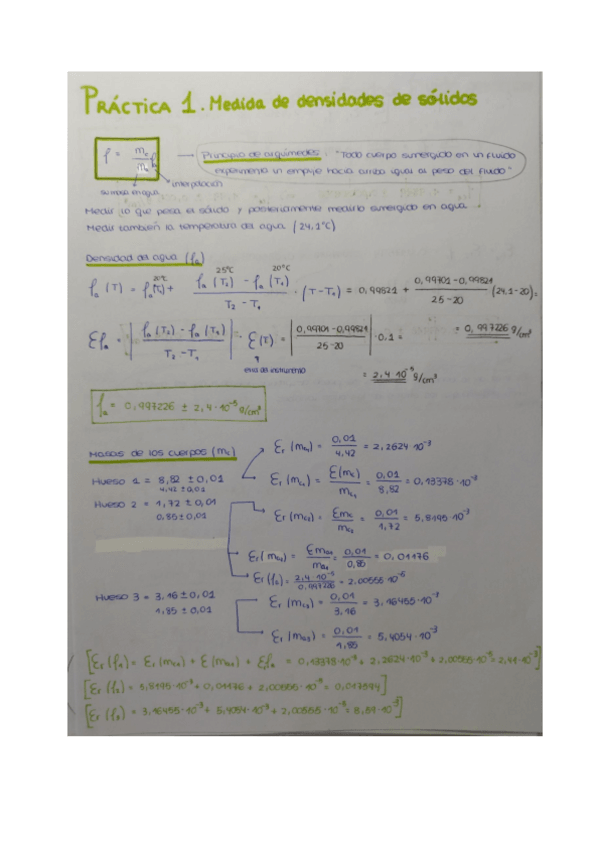 PRÁCTICA 1. Medida de densidades de sólidos
ρ = m_c / m_a ρ_a → Principio de arquímedes: "Todo cuerpo sumergido en un fluido
experimenta un empuje hacia arriba igual al peso del fluido"
su masa en agua
interpolación
Medir lo que pesa el sólido y posteriormente medirlo sumergido en agua
Medir también la temperatura del agua (24,1°C)
Densidad del agua (ρ_a)
20°C 25°C 20°C
ρ_a (T) = ρ_a(T_1) + (ρ_a (T_2) - ρ_a (T_1)) / (T_2 - T_1) · (T - T_1) = 0,99821 + (0,99701 - 0,99821) / (25-20) (24,1-20) =
= 0,997226 g/cm³
Ɛρ_a = |(ρ_a (T_2) - ρ_a (T_1)) / (T_2 - T_1)| · Ɛ(T) = |(0,99701 - 0,99821) / (25-20)| · 0,1 =
error del instrumento
= 2,4·10⁻⁵ g/cm³
ρ_a = 0,997226 ± 2,4·10⁻⁵ g/cm³
Masas de los cuerpos (m_c)
Ɛr (m_a1) = 0,01 / 4,42 = 2,2624·10⁻³
Hueso 1 = 8,82 ± 0,01
4,42 ± 0,01
Ɛr (m_c1) = Ɛ(m_c) / m_c1 = 0,01 / 8,82 = 0,13378·10⁻³
Hueso 2 = 1,72 ± 0,01
0,85 ± 0,01
Ɛr (m_c2) = Ɛm_c / m_c2 = 0,01 / 1,72 = 5,8195·10⁻³
Ɛr (m_a2) = Ɛm_a2 / m_a2 = 0,01 / 0,85 = 0,01176
Ɛr (ρ_a) = 2,4·10⁻⁵ / 0,997226 = 2,00555·10⁻⁵
Hueso 3 = 3,16 ± 0,01
1,85 ± 0,01
Ɛr (m_c3) = 0,01 / 3,16 = 3,16455·10⁻³
Ɛr (m_a3) = 0,01 / 1,85 = 5,4054·10⁻³
[Ɛr (ρ_1) = Ɛr (m_c1) + Ɛ(m_a1) + Ɛρ_a = 0,13378·10⁻³ + 2,2624·10⁻³ + 2,00555·10⁻⁵ = 2,41·10⁻³]
[Ɛr (ρ_2) = 5,8195·10⁻³ + 0,01176 + 2,00555·10⁻⁵ = 0,017594]
[Ɛr (ρ_3) = 3,16455·10⁻³ + 5,4054·10⁻³ + 2,00555·10⁻⁵ = 8,59·10⁻³]